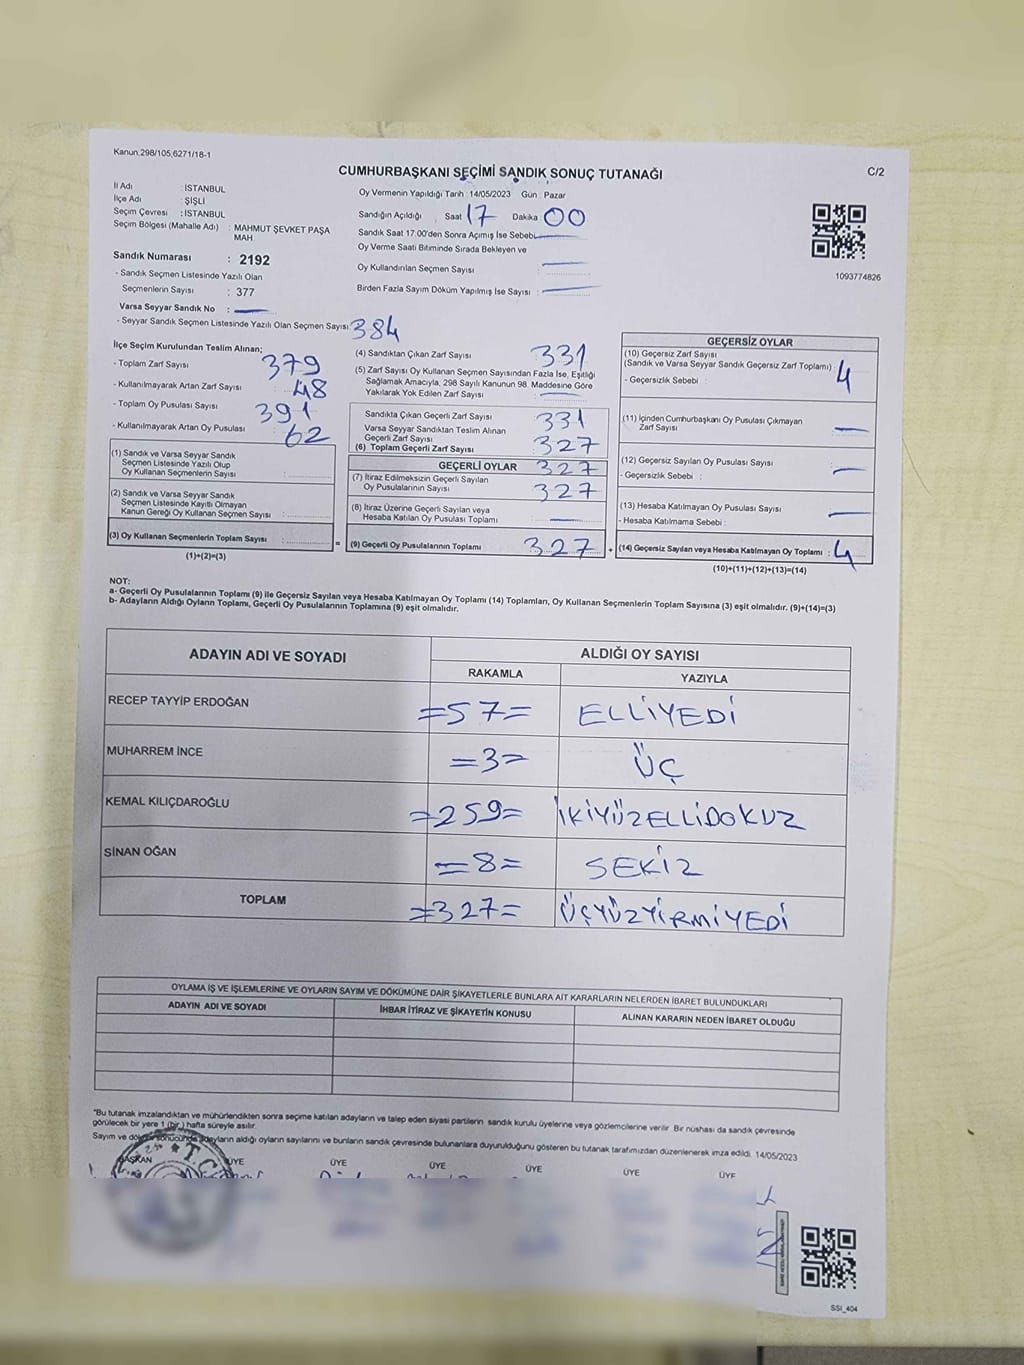 Kanun,298/105,6271/18-1
CUMHURBAŞKANI SEÇİMİ SANDIK SONUÇ TUTANAĞI
C/2
İl Adı : İSTANBUL
İlçe Adı : ŞİŞLİ
Seçim Çevresi : İSTANBUL
Seçim Bölgesi (Mahalle Adı) : MAHMUT ŞEVKET PAŞA MAH.
Sandık Numarası : 2192
- Sandık Seçmen Listesinde Yazılı Olan
Seçmenlerin Sayısı : 377
Varsa Seyyar Sandık No :
- Seyyar Sandık Seçmen Listesinde Yazılı Olan Seçmen Sayısı 384
Oy Vermenin Yapıldığı Tarih : 14/05/2023 Gün : Pazar
Sandığın Açıldığı , Saat 17 Dakika 00
Sandık Saat 17:00'den Sonra Açımış İse Sebebi
Oy Verme Saati Bitiminde Sırada Bekleyen ve
Oy Kullandırılan Seçmen Sayısı :
Birden Fazla Sayım Döküm Yapılmış İse Sayısı :
1093774826
İlçe Seçim Kurulundan Teslim Alınan;
- Toplam Zarf Sayısı : 379
- Kullanılmayarak Artan Zarf Sayısı : 48
- Toplam Oy Pusulası Sayısı : 391
- Kullanılmayarak Artan Oy Pusulası : 62
(1) Sandık ve Varsa Seyyar Sandık
Seçmen Listesinde Yazılı Olup
Oy Kullanan Seçmenlerin Sayısı :
(2) Sandık ve Varsa Seyyar Sandık
Seçmen Listesinde Kayıtlı Olmayan
Kanun Gereği Oy Kullanan Seçmen Sayısı :
(3) Oy Kullanan Seçmenlerin Toplam Sayısı :
(1)+(2)=(3)
(4) Sandıktan Çıkan Zarf Sayısı : 331
(5) Zarf Sayısı Oy Kullanan Seçmen Sayısından Fazla İse, Eşitliği
Sağlamak Amacıyla, 298 Sayılı Kanunun 98. Maddesine Göre
Yakılarak Yok Edilen Zarf Sayısı :
Sandıkta Çıkan Geçerli Zarf Sayısı : 331
Varsa Seyyar Sandıktan Teslim Alınan
Geçerli Zarf Sayısı : 327
(6) Toplam Geçerli Zarf Sayısı
GEÇERLİ OYLAR 327
(7) İtiraz Edilmeksizin Geçerli Sayılan
Oy Pusulalarının Sayısı : 327
(8) İtiraz Üzerine Geçerli Sayılan veya
Hesaba Katılan Oy Pusulası Toplamı :
= (9) Geçerli Oy Pusulalarının Toplamı : 327 +
GEÇERSİZ OYLAR
(10) Geçersiz Zarf Sayısı
(Sandık ve Varsa Seyyar Sandık Geçersiz Zarf Toplamı) : 4
- Geçersizlik Sebebi :
(11) İçinden Cumhurbaşkanı Oy Pusulası Çıkmayan
Zarf Sayısı :
(12) Geçersiz Sayılan Oy Pusulası Sayısı :
- Geçersizlik Sebebi :
(13) Hesaba Katılmayan Oy Pusulası Sayısı :
- Hesaba Katılmama Sebebi :
(14) Geçersiz Sayılan veya Hesaba Katılmayan Oy Toplamı : 4
(10)+(11)+(12)+(13)=(14)
NOT:
a- Geçerli Oy Pusulalarının Toplamı (9) ile Geçersiz Sayılan veya Hesaba Katılmayan Oy Toplamı (14) Toplamları, Oy Kullanan Seçmenlerin Toplam Sayısına (3) eşit olmalıdır. (9)+(14)=(3)
b- Adayların Aldığı Oyların Toplamı, Geçerli Oy Pusulalarının Toplamına (9) eşit olmalıdır.
ADAYIN ADI VE SOYADI ALDIĞI OY SAYISI
RAKAMLA YAZIYLA
RECEP TAYYİP ERDOĞAN =57= ELLİYEDİ
MUHARREM İNCE =3= ÜÇ
KEMAL KILIÇDAROĞLU =259= İKİYÜZELLİDOKUZ
SİNAN OĞAN =8= SEKİZ
TOPLAM =327= ÜÇYÜZYİRMİYEDİ
OYLAMA İŞ VE İŞLEMLERİNE VE OYLARIN SAYIM VE DÖKÜMÜNE DAİR ŞİKAYETLERLE BUNLARA AİT KARARLARIN NELERDEN İBARET BULUNDUKLARI
ADAYIN ADI VE SOYADI İHBAR İTİRAZ VE ŞİKAYETİN KONUSU ALINAN KARARIN NEDEN İBARET OLDUĞU
*Bu tutanak imzalandıktan ve mühürlendikten sonra seçime katılan adayların ve talep eden siyasi partilerin sandık kurulu üyelerine veya gözlemcilerine verilir. Bir nüshası da sandık çevresinde
görülecek bir yere 1 (bir ) hafta süreyle asılır.
Sayım ve döküm sonucunda adayların aldığı oyların sayılarını ve bunların sandık çevresinde bulunanlara duyurulduğunu gösteren bu tutanak tarafımızdan düzenlenerek imza edildi. 14/05/2023
BAŞKAN ÜYE ÜYE ÜYE ÜYE ÜYE ÜYE
T.C.
SSI_404